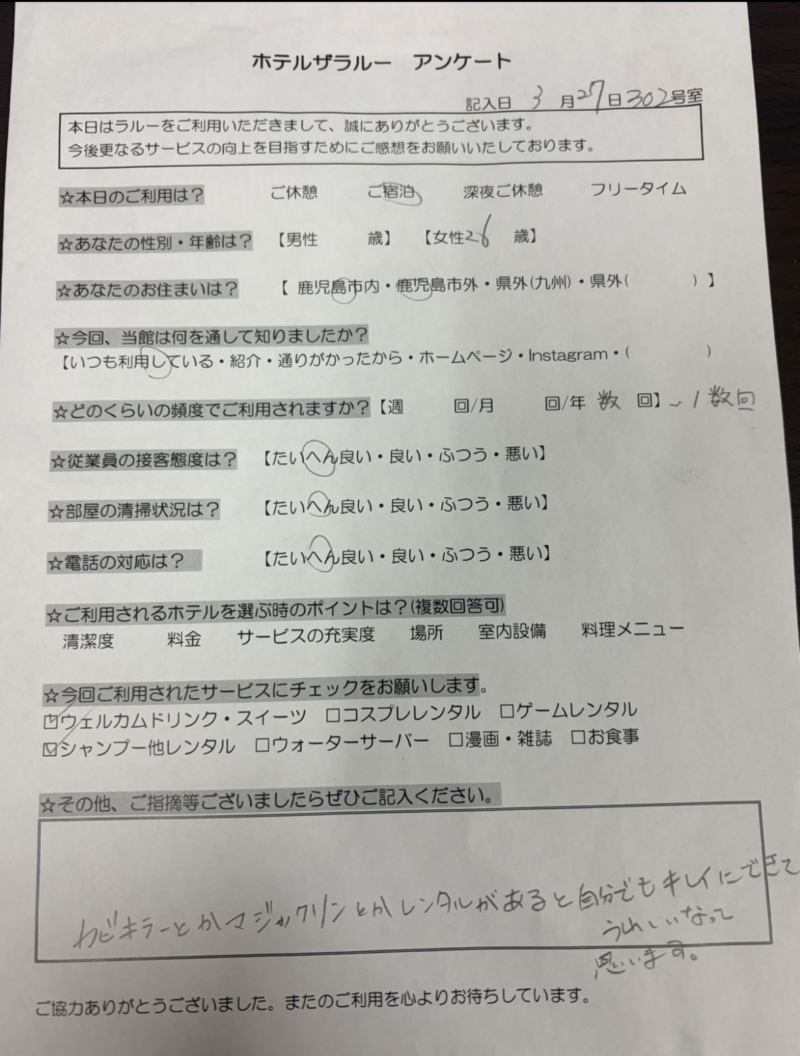 ホテルザラルー　アンケート
記入日 3月27日302号室
本日はラルーをご利用いただきまして、誠にありがとうございます。
今後更なるサービスの向上を目指すためにご感想をお願いいたしております。
☆本日のご利用は？　ご休憩　ご宿泊　深夜ご休憩　フリータイム
☆あなたの性別・年齢は？　【男性　歳】　【女性26　歳】
☆あなたのお住まいは？　【 鹿児島市内・鹿児島市外・県外(九州)・県外(　) 】
☆今回、当館は何を通して知りましたか？
【いつも利用している・紹介・通りがかったから・ホームページ・Instagram・(　)
☆どのくらいの頻度でご利用されますか？【週　回/月　回/年 数 回】~1数回
☆従業員の接客態度は？　【たいへん良い・良い・ふつう・悪い】
☆部屋の清掃状況は？　【たいへん良い・良い・ふつう・悪い】
☆電話の対応は？　【たいへん良い・良い・ふつう・悪い】
☆ご利用されるホテルを選ぶ時のポイントは？(複数回答可)
清潔度　料金　サービスの充実度　場所　室内設備　料理メニュー
☆今回ご利用されたサービスにチェックをお願いします。
☑ウェルカムドリンク・スイーツ　□コスプレレンタル　□ゲームレンタル
☑シャンプー他レンタル　□ウォーターサーバー　□漫画・雑誌　□お食事
☆その他、ご指摘等ございましたらぜひご記入ください。
カビキラーとかマジックリンとかレンタルがあると自分でもキレイにできて
うれしいなって
思います。
ご協力ありがとうございました。またのご利用を心よりお待ちしています。